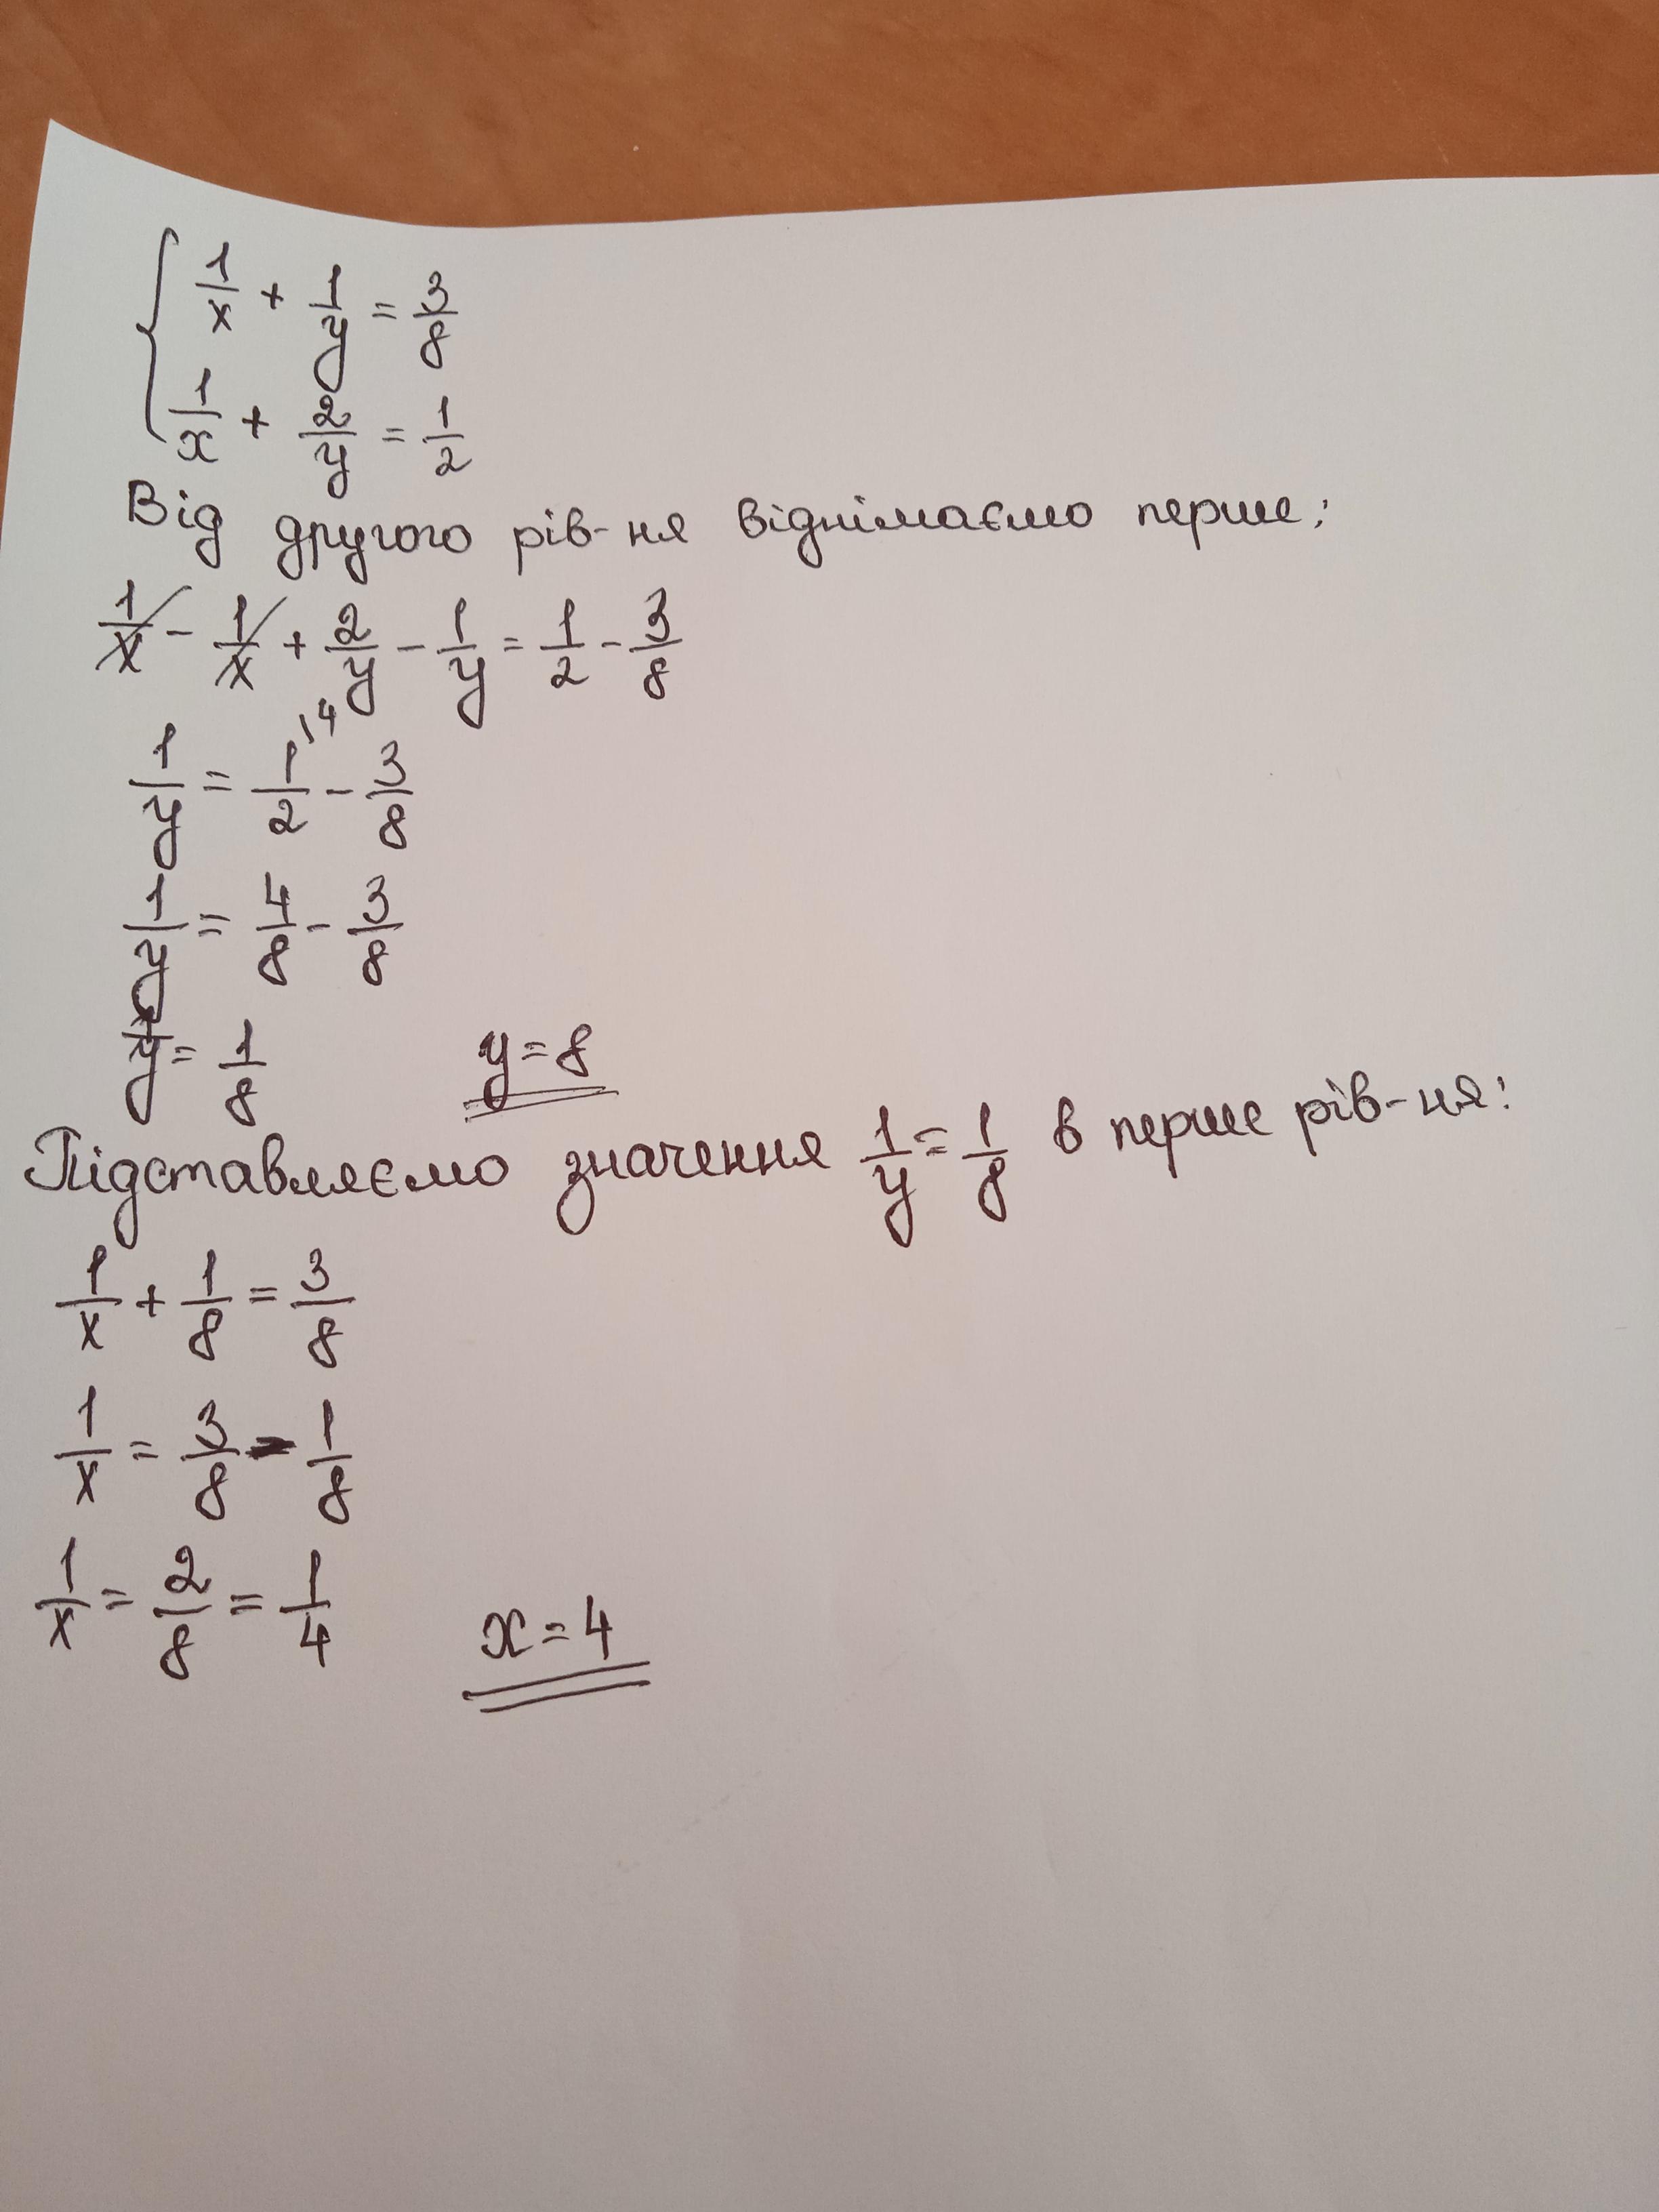 1/x + 1/y = 3/8
1/x + 2/y = 1/2
Від другого рів-ня віднімаємо перше:
1/x - 1/x + 2/y - 1/y = 1/2 - 3/8
1/y = 1\4/2 - 3/8
1/y = 4/8 - 3/8
1/y = 1/8 y = 8
Підставляємо значення 1/y = 1/8 в перше рів-ня:
1/x + 1/8 = 3/8
1/x = 3/8 - 1/8
1/x = 2/8 = 1/4 x = 4